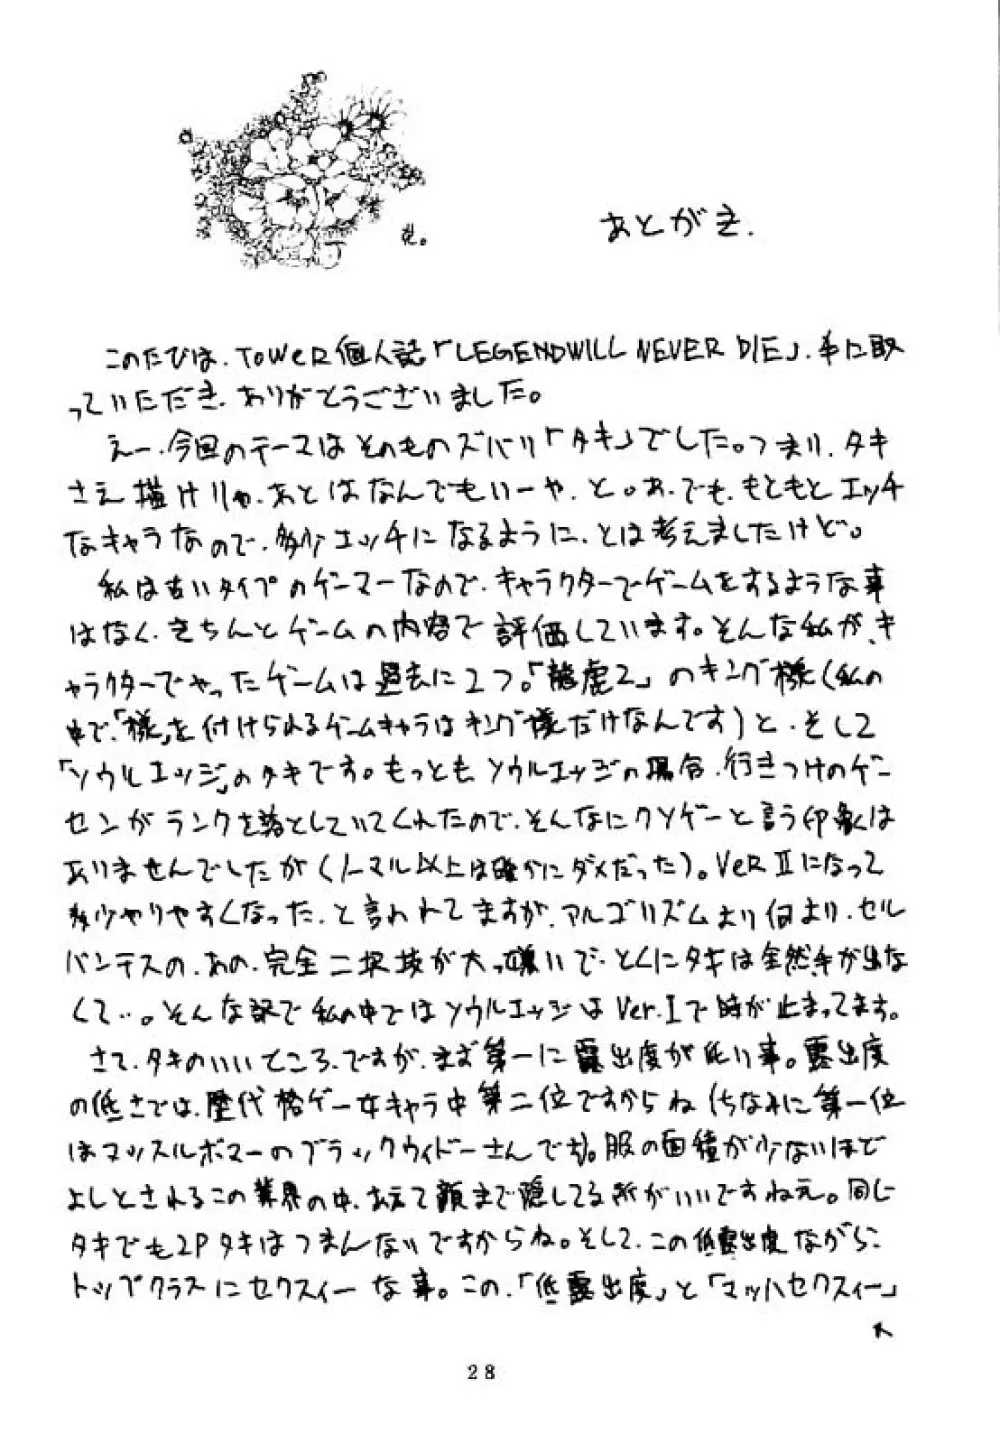 あとがき.
このたびは、TOWER個人誌「LEGENDWILL NEVER DIE」、手に取
っていただき、ありがとうございました。
えー、今回のテーマはそのものズバリ「タキ」でした。つまり、タキ
さえ描けりゃ、あとはなんでもいーや、と。あ、でも、もともとエッチ
なキャラなので、多少エッチになるように、とは考えましたけど。
私は古いタイプのゲーマーなので、キャラクターでゲームをするような事
はなく、きちんとゲームの内容で評価しています。そんな私が、キ
ャラクターでやったゲームは過去に2つ。「龍虎2」のキング様(私の
中で、「様」を付けられるゲームキャラはキング様だけなんです)と、そして
「ソウルエッジ」のタキです。もっとも、ソウルエッジの場合、行きつけのゲー
センがランクを落としていてくれたので、そんなにクソゲーと言う印象は
ありませんでしたが(ノーマル以上は確かにダメだった)。VeR Ⅱになって
多少やりやすくなった、と言われてますが、アルゴリズムより何より、セル
バンテスの、あの、完全二択技が大っ嫌いで、とくにタキは全然手が出な
くて…。そんな訳で私の中ではソウルエッジはVer.Iで時が止まってます。
さて、タキのいいところ、ですが、まず第一に露出度が低い事。露出度
の低さでは、歴代格ゲー女キャラ中第二位ですからね(ちなみに第一位
はマッスルボマーのブラックウィドーさんです)。服の面積が少ないほど
よしとされるこの業界の中、あえて顔まで隠してる所がいいですねえ。同じ
タキでも2Pタキはつまんないですからね。そして、この低露出度ながら、
トップクラスにセクスィーな事。この、「低露出度」と「マッハセクスィー」
28